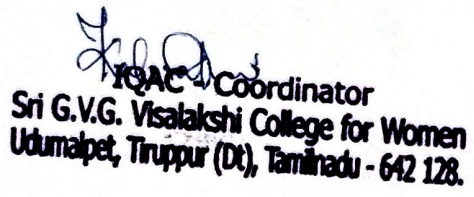 IQAC - Coordinator
Sri G.V.G. Visalakshi College for Women
Udumalpet, Tiruppur (Dt), Tamilnadu - 642 128.